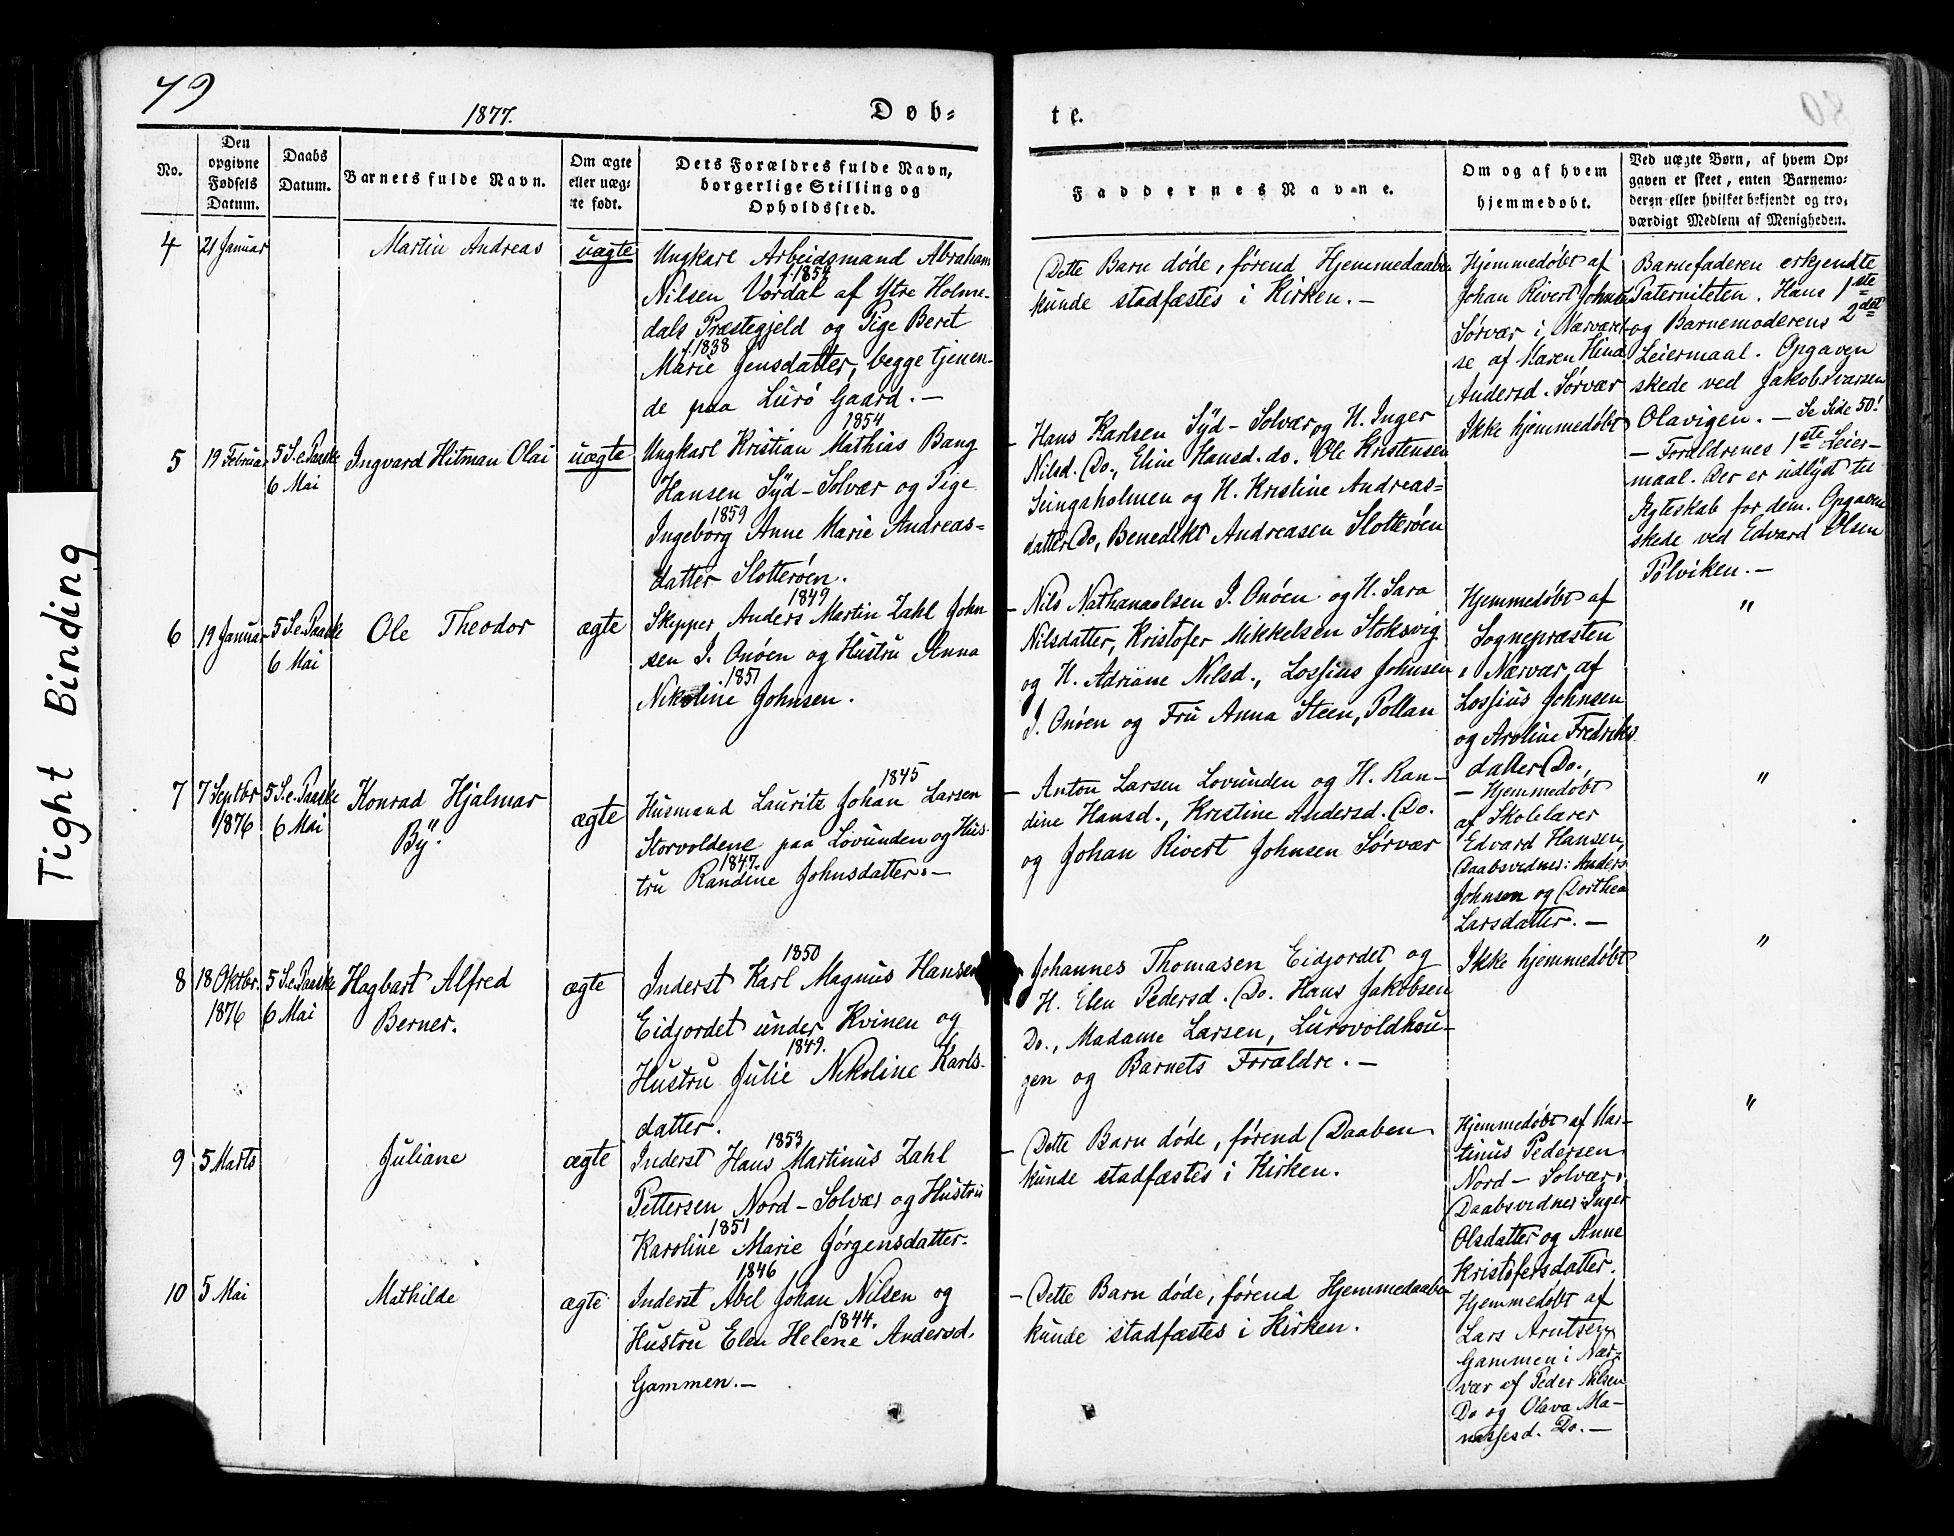 79
1877.
Døb-
te.
No.
Den opgivne Fødsels Datum.
Daabs Datum.
Barnets fulde Navn.
Om ægte eller uægte født.
Dets Forældres fulde Navn, borgerlige Stilling og Opholdssted.
Faddernes Navne.
Om og af hvem hjemmedøbt.
Ved uægte Børn, af hvem Opgaven er skeet, enten Barnemoderen eller hvilket bekjendt og troværdigt Medlem af Menigheden.
4
21 Januar
Martin Andreas
uægte
Ungkarl Arbeidsmand Abraham
f. 1854
Nilsen Vordal af Ytre Holme-
dals Præstegjeld og Pige Beret
f. 1838
Marie Jensdatter, begge tjenen-
de paa Lurö Gaard. —
Dette Barn døde, førend Hjemmedaaben
kunde stadfæstes i Kirken. —
Hjemmedøbt af
Johan Rivert Johns.
Sørvær i Nærværel-
se af Maren Hind
Andersd. Sørvær
Barnefaderen erkjendte
Paterniteten. Hans 1ste
og Barnemoderens 2det
Leiermaal. Opgaven
skede ved Jakob Ivarsen
Olavigen. — Se Side 50!
5
19 Februar
5 S. e. Paaske
6 Mai
Ingvard Hitman Olai
uægte
1854
Ungkarl Kristian Mathias Bang
Hansen Syd-Solvær og Pige
1859
Ingeborg Anne Marie Andreas-
datter Slotterøen.
— Hans Karlsen Syd-Solvær, og H. Inger
Nilsd. Do., Eline Hansd. do. Ole Kristensen
Seingsholmen og H. Kristine Andreas-
datter Do, Benedikt Andreasen Slotterøen
Ikke hjemmedøbt
— Forældrenes 1ste Leier-
maal. Der er udlyst til
Ægteskab for dem. Opgaven
skede ved Edvard Olsen
Pølviken. —
6
19 Januar
5 S. e. Paaske
6 Mai
Ole Theodor
ægte
1849
Skipper Anders Martin Zahl John
sen I. Onøen og Hustru Anna
1851
Nikoline Johnsen.
— Nils Nathanaelsen I. Onøen og H. Sara
Nilsdatter, Kristofer Mikkelsen Stoksvig
og H. Adriane Nilsd., Lossius Johnsen
I. Onøen og Fru Anna Steen, Pollan
Hjemmedøbt af
Sognepræsten
i Nærvær af
Lossius Johnsen
og Aroline Fredriks
datter Do.,
"
7
7 Septbr
1876
5 S. e. Paaske
6 Mai
Konrad Hjalmar
By.
ægte
1845
Husmand Lauritz Johan Larsen
Storvoldene paa Lovunden og Hus-
1847.
tru Randine Johnsdatter. —
— Anton Larsen Lovunden og H. Ran-
dine Hansd., Kristine Andersd. Do.
og Johan Rivert Johnsen Sørvær
— Hjemmedøbt
af Skolelærer
Edvard Hansen,
Daabsvidner: Anders
Johnsen og Dorthea
Larsdatter. —
"
8
18 Oktbr.
1876
5 S. e. Paaske
6 Mai
Hagbart Alfred
Berner.
ægte
1850
Inderst Karl Magnus Hansen
Eidjordet under Kvinen og
1849.
Hustru Julie Nikoline Karls-
datter.
Johannes Thomasen Eidjordet og
H. Elen Pedersd. Do. Hans Jakobsen
Do., Madame Larsen, Lurovoldhou-
gen og Barnets Forældre. —
Ikke hjemmedøbt
"
9
5 Marts
Juliane
ægte
1853
Inderst Hans Martinus Zahl
Pettersen Nord-Solvær og Hustru
1851
Karoline Marie Jørgensdatter.
— Dette Barn døde, førend Daaben
kunde stadfæstes i Kirken.
Hjemmedøbt af Mar-
tinus Pedersen
Nord-Solvær.
Daabsvidner: Inger
Olsdatter og Anne
Kristofersdatter.
"
10
5 Mai
Mathilde
ægte
1846
Inderst Abel Johan Nilsen og
1844.
Hustru Elen Helene Andersd.
Gammen. —
— Dette Barn døde, førend Hjemmedaaben
kunde stadfæstes i Kirken.
Hjemmedøbt af
Lars Arntsen
Gammen i Nær-
vær af Peder Nilsen
Do og Olava Ma-
nassesd. Do. —
Tight Binding